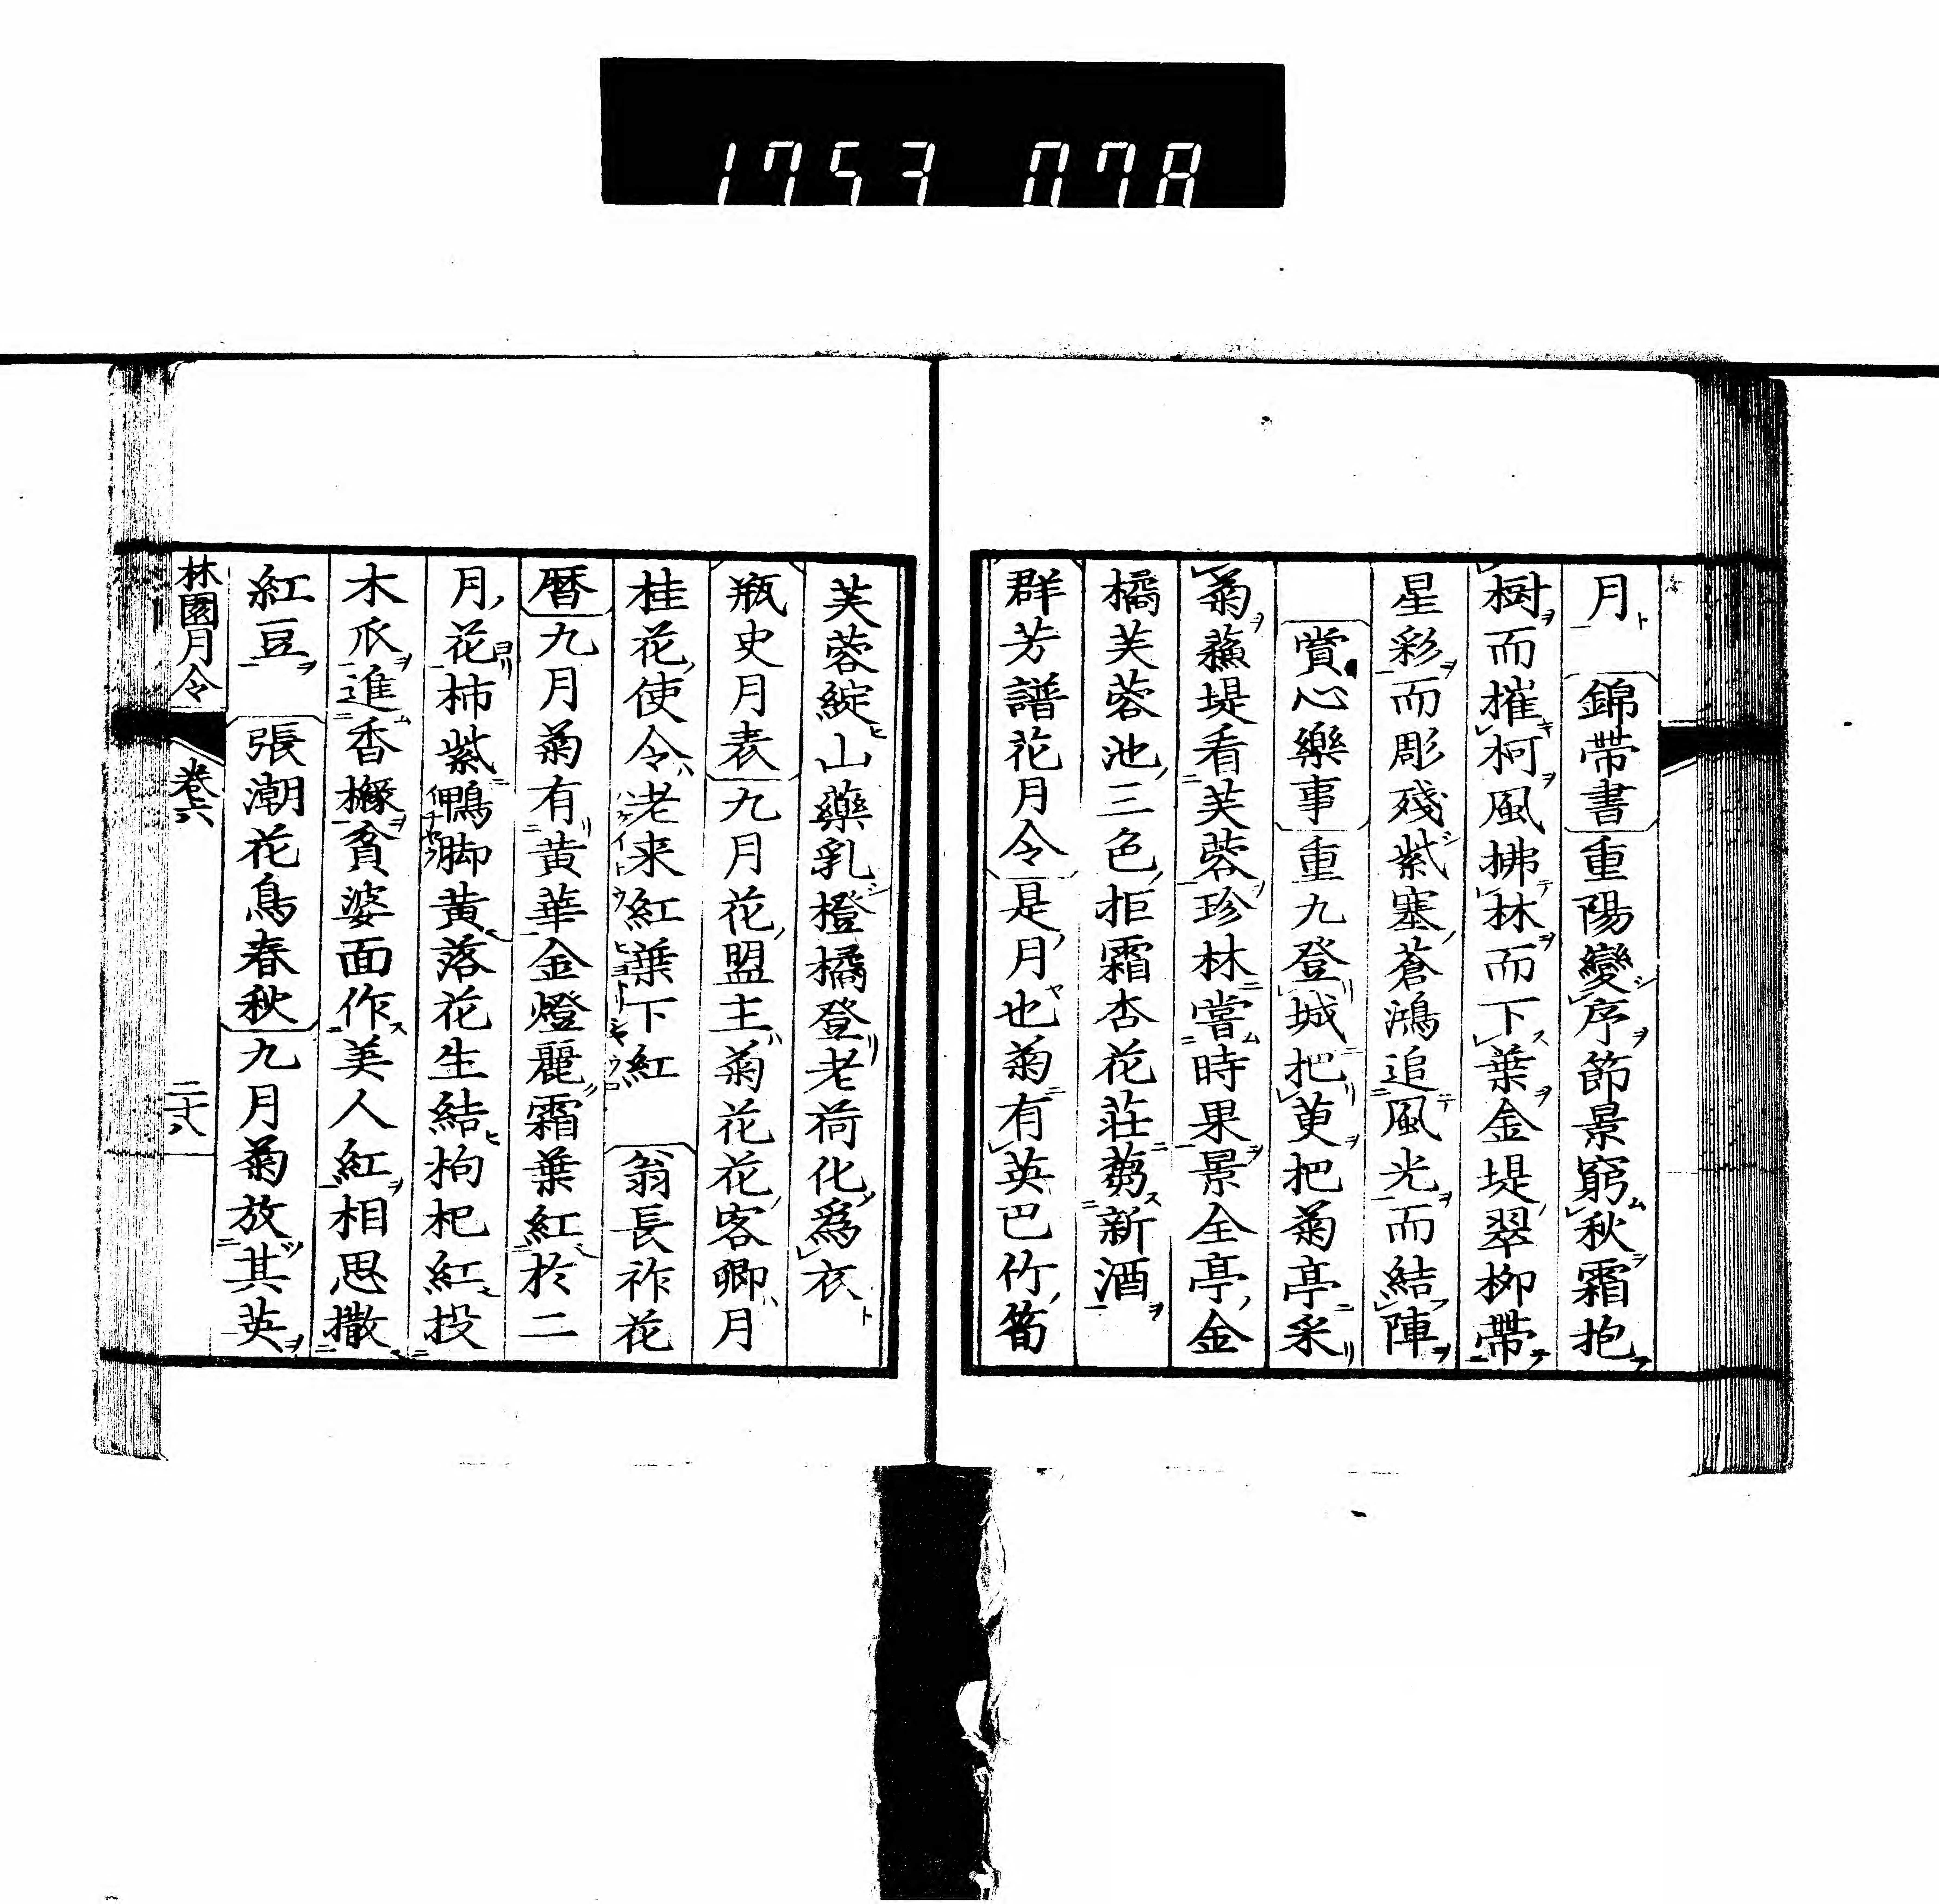 1753 078
月 錦帶書重陽變序節景窮秋霜抱
樹而摧柯風拂林而下葉金堤翠柳帶
星彩而彫殘紫塞蒼鴻追風光而結陣
賞心樂事重九登城把萸把菊亭采
菊蘓堤看芙蓉珍林嘗時果景全亭金
橘芙蓉池三色拒霜杏花荘蒭新酒
群芳譜花月令是月也菊有英巴竹筍
芙蓉綻山藥乳橙橘登老荷化爲衣
瓶史月表九月花盟主菊花花客卿月
桂花使令老来紅葉下紅 翁長祚花
暦九月菊有黄華金燈麗霜葉紅於二
月花柿紫鴨脚黄落花生結枸杞紅投
木瓜進香櫞貧婆面作美人紅相思撒
紅豆 張潮花鳥春秋九月菊放其英
林園月令 巻六 二十八